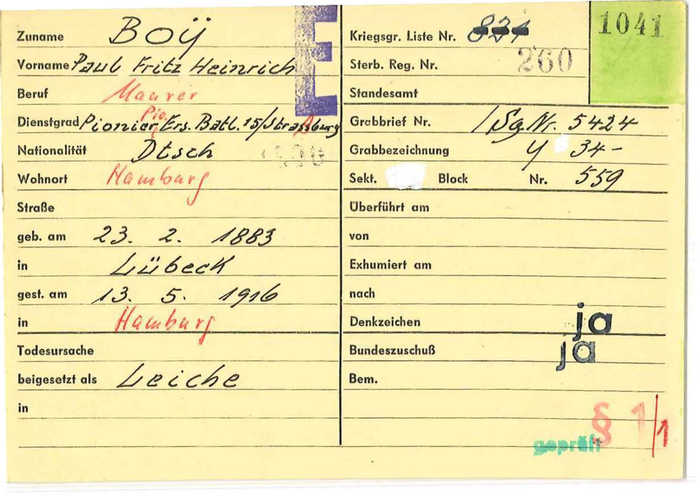 Zuname BOŸ
Vorname Paul Fritz Heinrich
Beruf Maurer
Dienstgrad Pionier, Pio. Ers. Batl. 15/Strassburg
Nationalität Dtsch
Wohnort Hamburg
Straße
geb. am 23. 2. 1883
in Lübeck
gest. am 13. 5. 1916
in Hamburg
Todesursache
beigesetzt als Leiche
in
E
Kriegsgr. Liste Nr. 821
1041
Sterb. Reg. Nr. 260
Standesamt
Grabbrief Nr. / Sg. Nr. 5424
Grabbezeichnung Y 34-
Sekt. Block Nr. 559
Überführt am
von
Exhumiert am
nach
Denkzeichen ja
Bundeszuschuß ja
Bem.
§ 1/1
geprüft